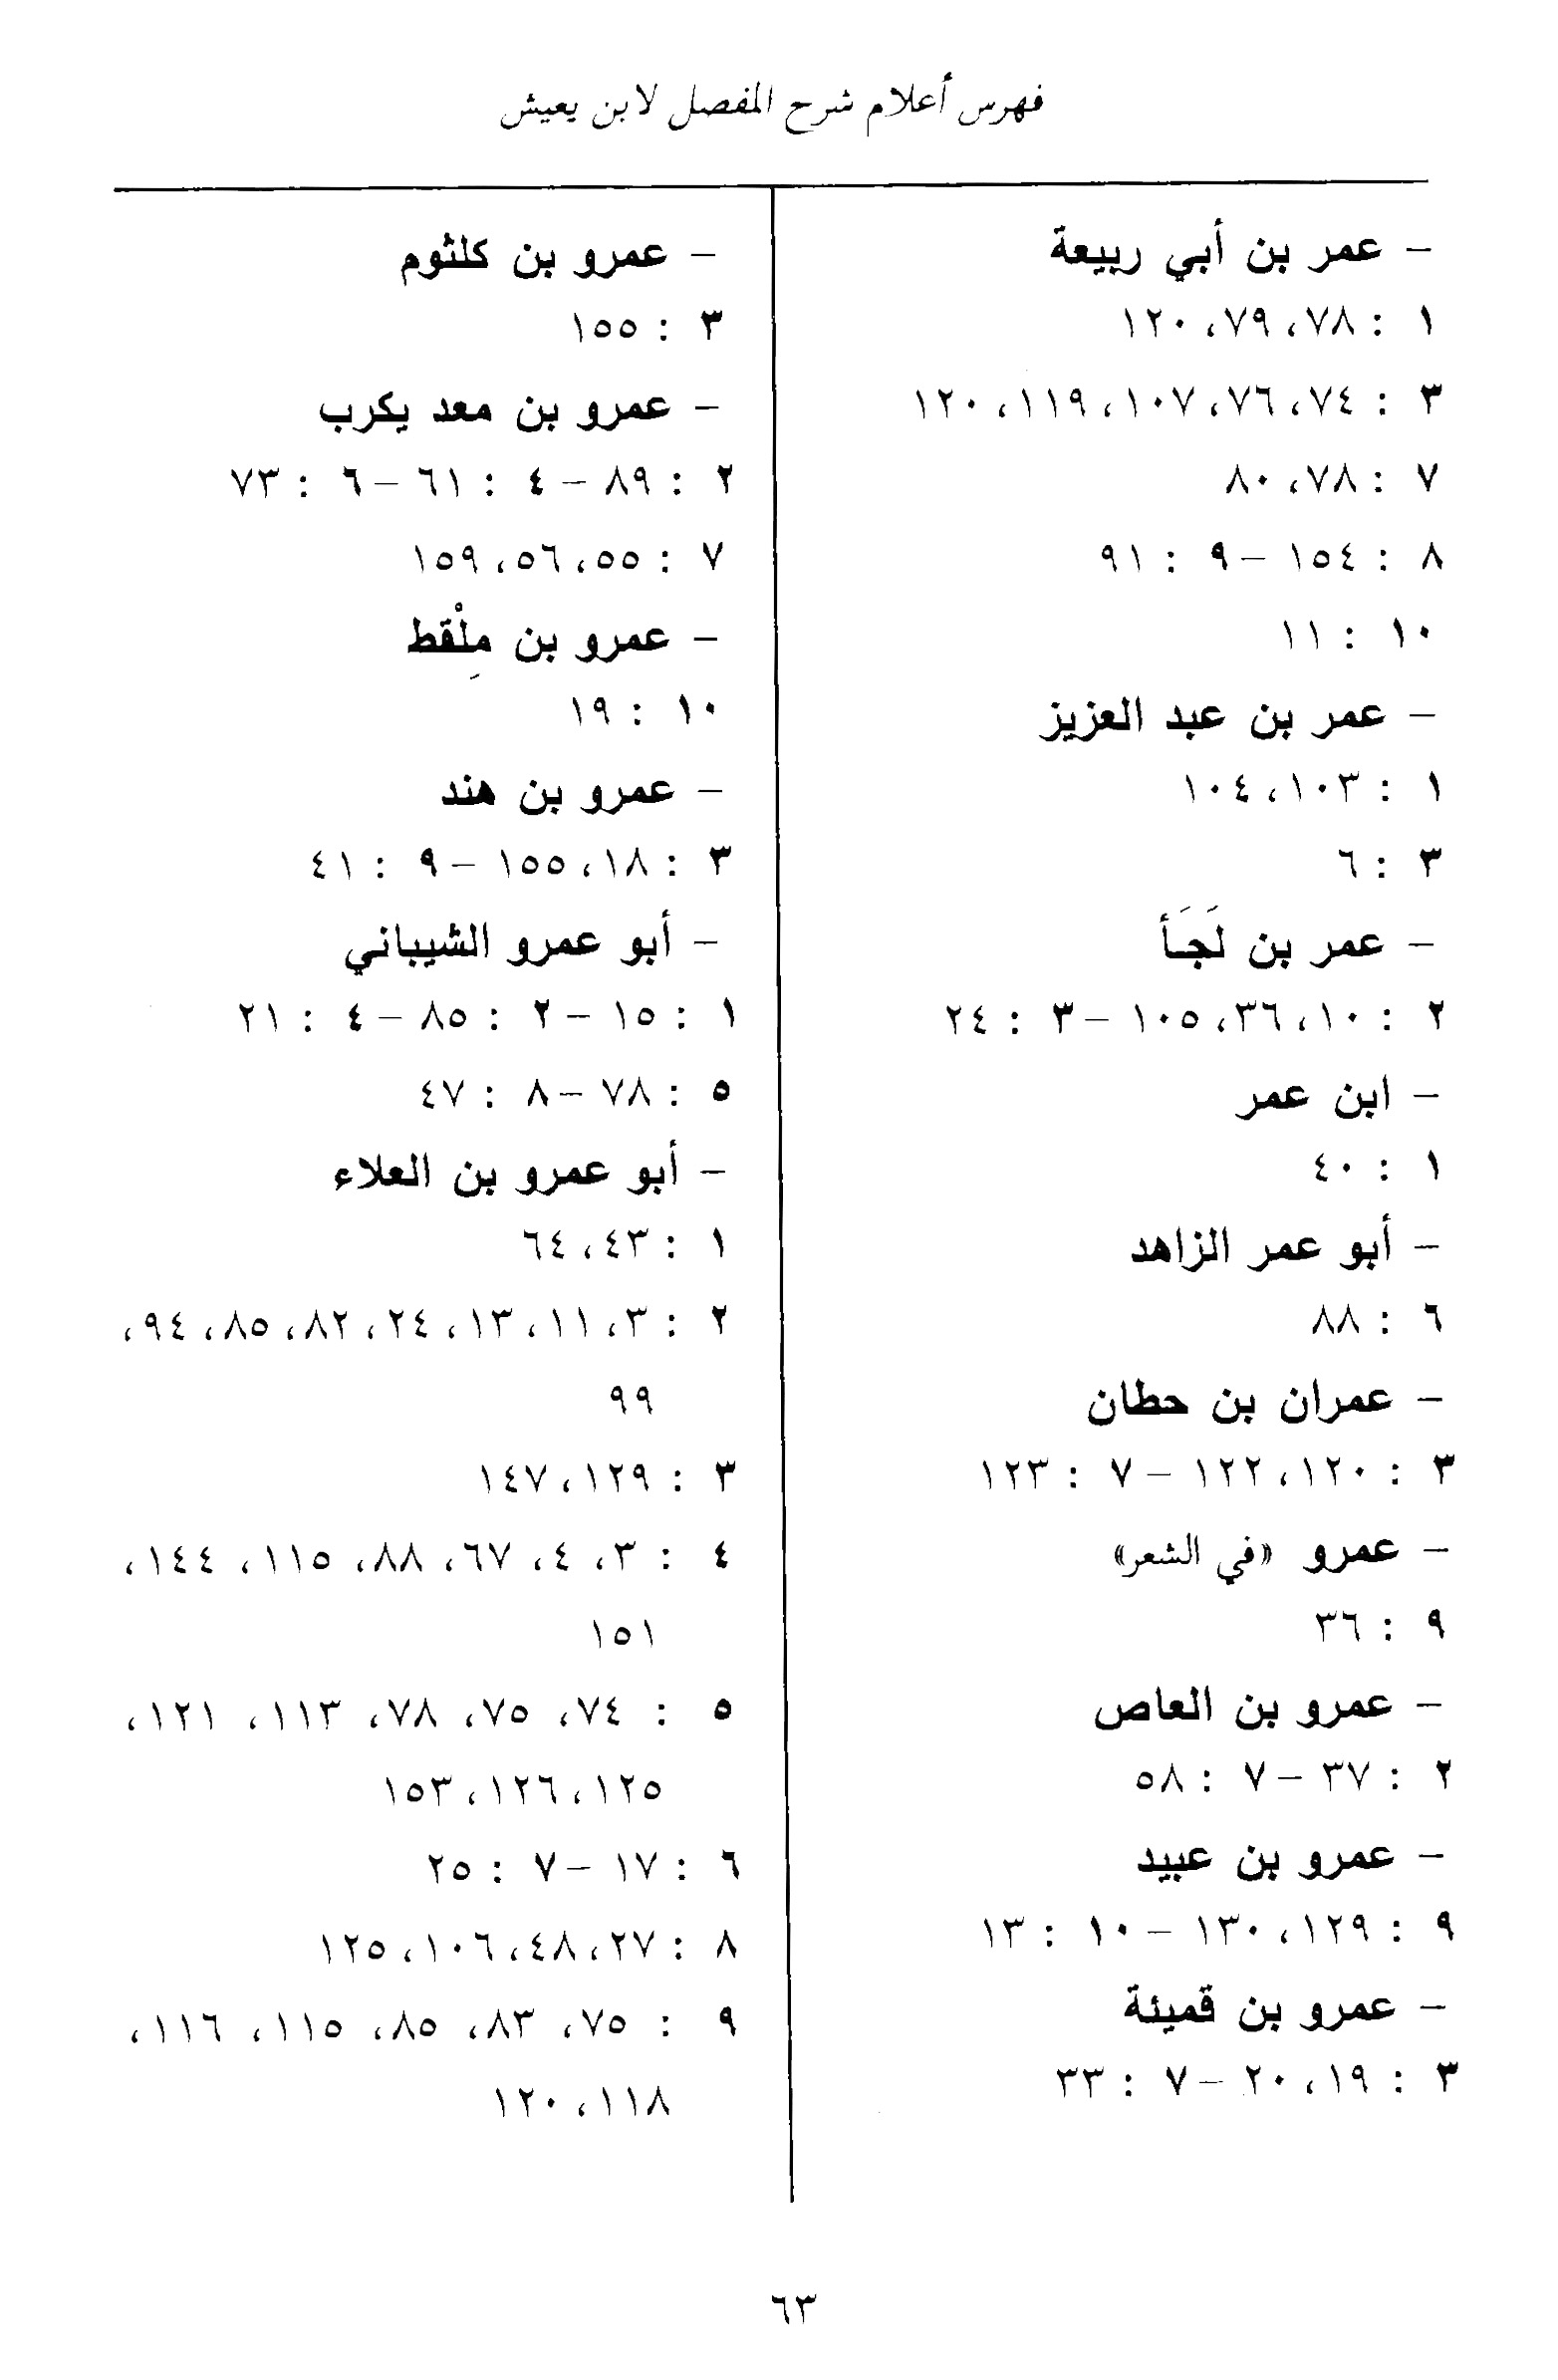 فهرس أعلام شرح المفصل لابن يعيش
– عمر بن أبي ربيعة
١ : ٧٨، ٧٩، ١٢٠
٣ : ٧٤، ٧٦، ١٠٧، ١١٩، ١٢٠
٧ : ٧٨، ٨٠
٨ : ١٥٤ – ٩ : ٩١
١٠ : ١١
– عمر بن عبد العزيز
١ : ١٠٣، ١٠٤
٣ : ٦
– عمر بن لَجَأ
٢ : ١٠، ٣٦، ١٠٥ – ٣ : ٢٤
– ابن عمر
١ : ٤٠
– أبو عمر الزاهد
٦ : ٨٨
– عمران بن حطان
٣ : ١٢٠، ١٢٢ – ٧ : ١٢٣
– عمرو «في الشعر»
٩ : ٣٦
– عمرو بن العاص
٢ : ٣٧ – ٧ : ٥٨
– عمرو بن عبيد
٩ : ١٢٩، ١٣٠ – ١٠ : ١٣
– عمرو بن قميئة
٣ : ١٩، ٢٠ – ٧ : ٣٣
– عمرو بن كلثوم
٣ : ١٥٥
– عمرو بن معد يكرب
٢ : ٨٩ – ٤ : ٦١ – ٦ : ٧٣
٧ : ٥٥، ٥٦، ١٥٩
– عمرو بن مِلْقط
١٠ : ١٩
– عمرو بن هند
٣ : ١٨، ١٥٥ – ٩ : ٤١
– أبو عمرو الشيباني
١ : ١٥ – ٢ : ٨٥ – ٤ : ٢١
٥ : ٧٨ – ٨ : ٤٧
– أبو عمرو بن العلاء
١ : ٤٣، ٦٤
٢ : ٣، ١١، ١٣، ٢٤، ٨٢، ٨٥، ٩٤،
٩٩
٣ : ١٢٩، ١٤٧
٤ : ٣، ٤، ٦٧، ٨٨، ١١٥، ١٤٤،
١٥١
٥ : ٧٤، ٧٥، ٧٨، ١١٣، ١٢١،
١٢٥، ١٢٦، ١٥٣
٦ : ١٧ – ٧ : ٢٥
٨ : ٢٧، ٤٨، ١٠٦، ١٢٥
٩ : ٧٥، ٨٣، ٨٥، ١١٥، ١١٦،
١١٨، ١٢٠
٦٣